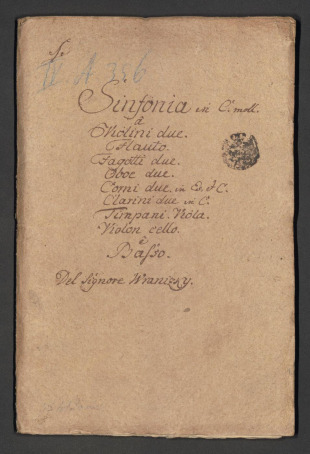 II A 356
Sinfonia in C moll.
à
Violini due.
Flauto.
Fagotti due.
Oboe due.
Corni due in Es é C.
Clarini due in C.
Timpani. Viola.
Violon cello.
è
Basso.
Del Signore Wranizky.